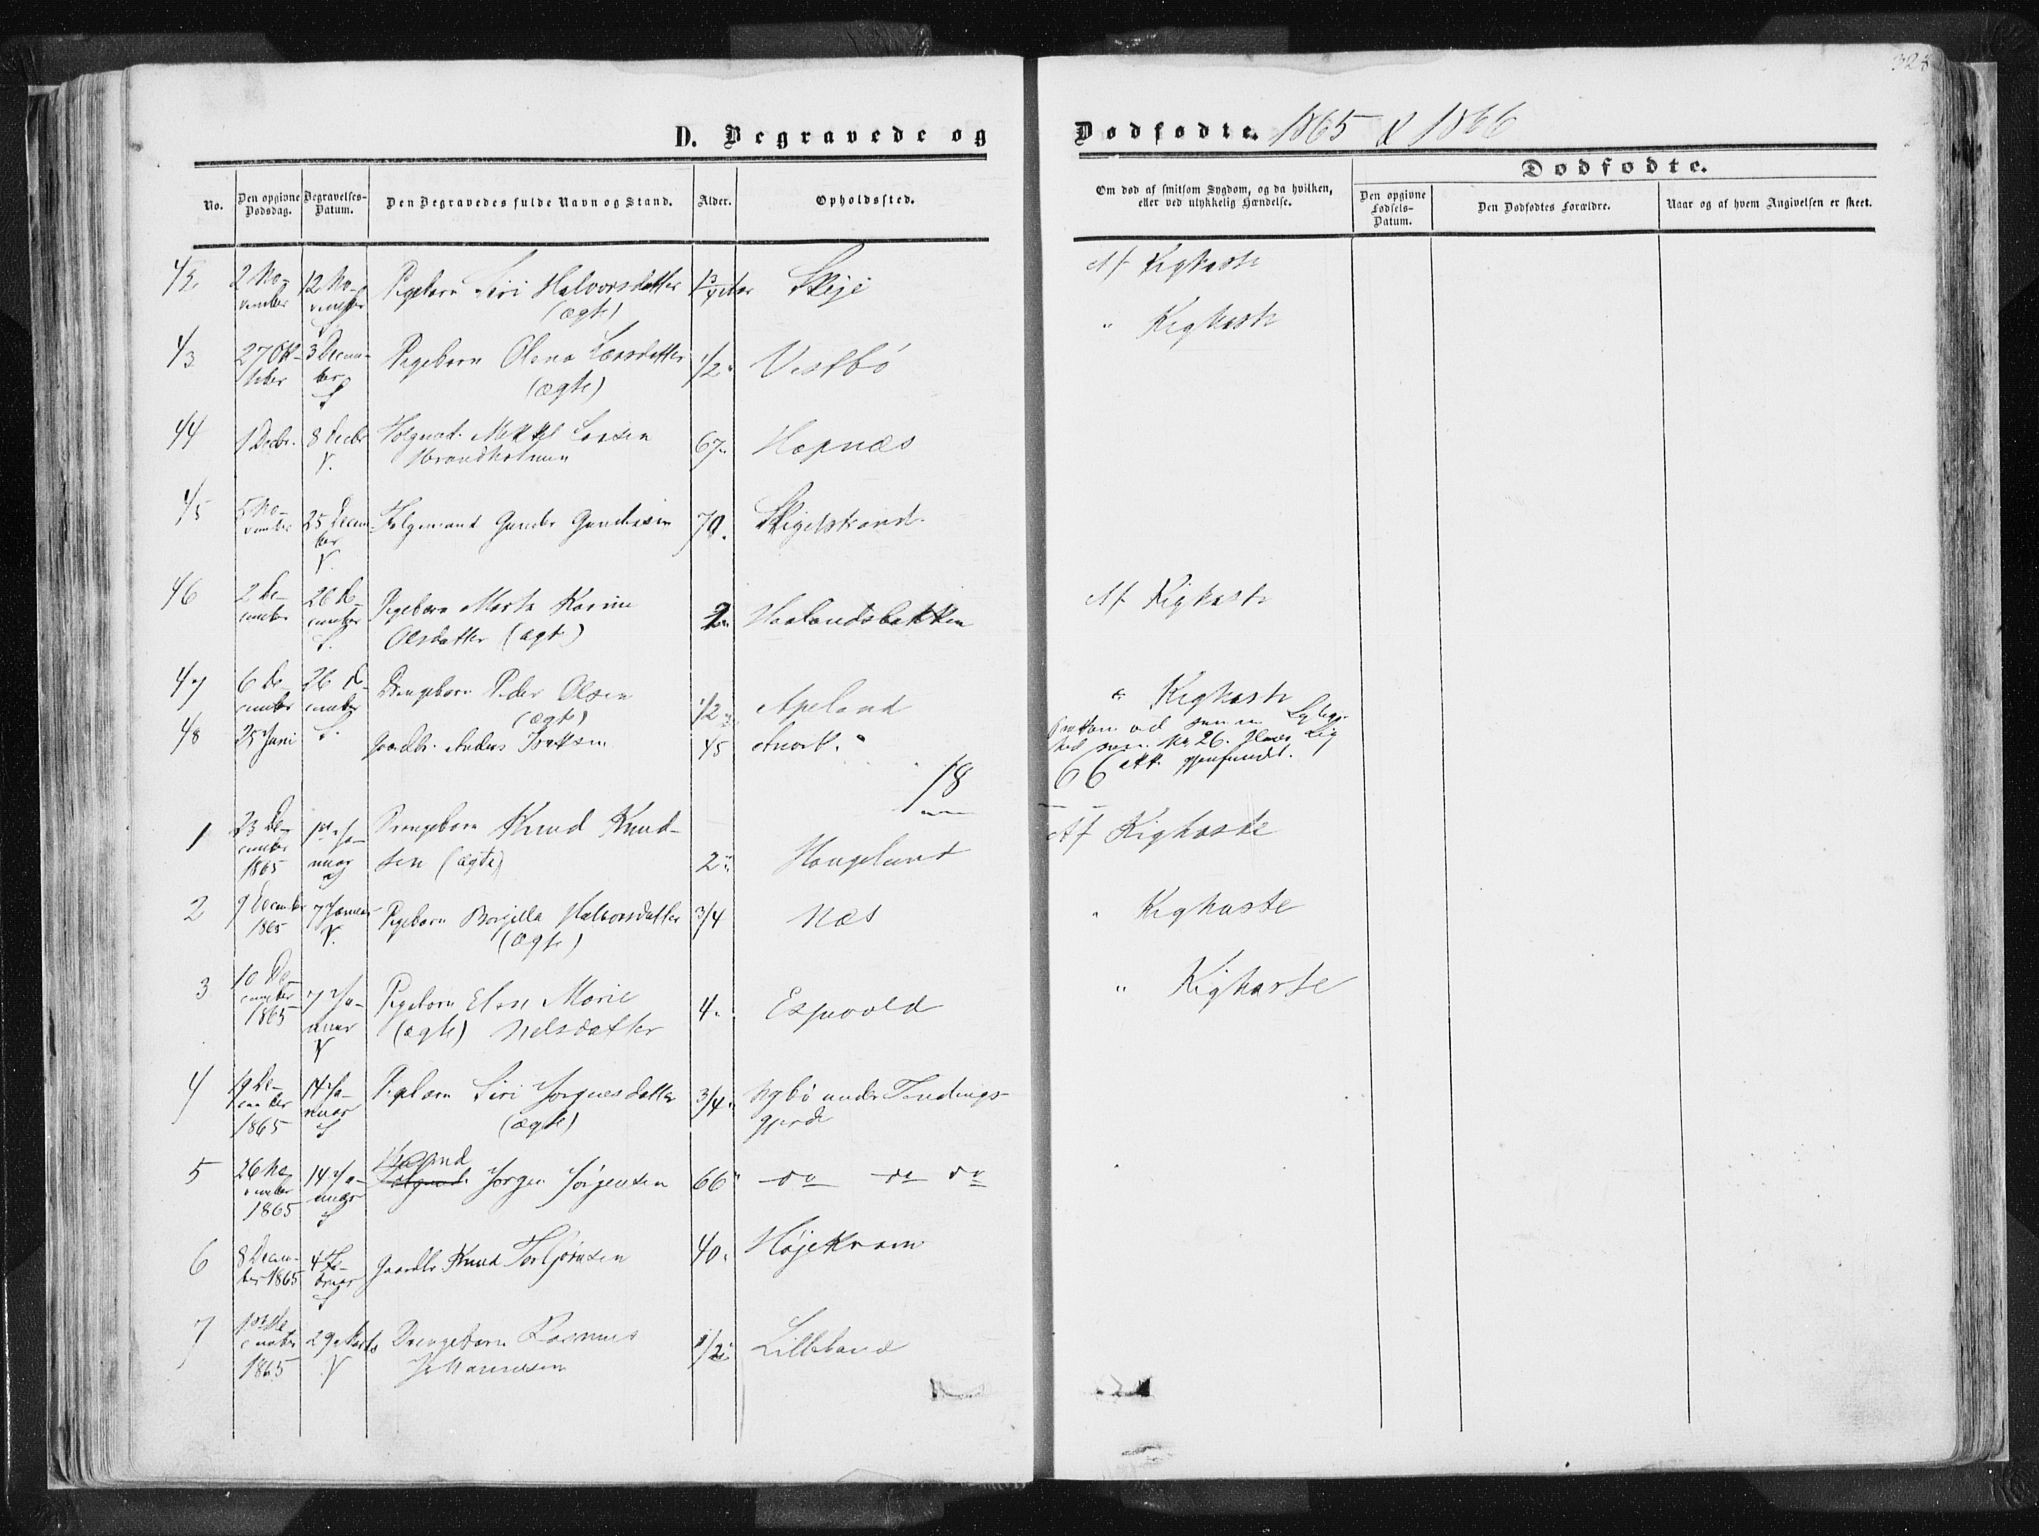 D. Begravede og
Dødfødte. 1865 & 1866
328
No.
Den opgivne Dødsdag.
Begravelses-Datum.
Den Begravedes fulde Navn og Stand.
Alder.
Opholdssted.
Om død af smitsom Sygdom, og da hvilken, eller ved ulykkelig Hændelse.
Dødfødte.
Den opgivne Fødsels-Datum.
Den Dødfødtes Forældre.
Naar og af hvem Angivelsen er skeet.
42. 2 November 12 November S. Pigebarn Siri Halvorsdatter (ægte) Skeje Af Kighoste
43 27 October 3 December S Pigebarn Olena Larsdatter (ægte) 1/2 " Vestbø " Kighoste
44 1 Decbr. 8 Decbr V. Mikkel Larsen 67 " Hapnæs
45 November 25 December V. Gunder Gundersen 70. Skigelstrand
46 2 December 26 December S. Pigebarn Marta Karine
Olsdatter (ægte) 2 " Haalandsbakken Af Kighoste
47 6 December 26 December S. Drengebarn Peder Olsen (ægte) 1/2 " Apeland " Kighoste
48 25 Juni Gaardbr. Anders 45 ved samme
som No 26. Hans Lig
ikke gjenfundet.
18 66
1 23 December 1865 1ste Januar S Drengebarn Knud Knud-
sen (ægte) 2 " Haugeland Af Kighoste
2 9 December 1865 7 Januar V. Pigebarn Borgilla Halvorsdatter (ægte) 3/4 Næs " Kighoste
3 10 December 1865 7 Januar V Pigebarn Marie
(ægte) Nelsdatter 4 " Espevold " Kighoste
4 December 1865 14 Januar S Pigebarn Siri Jørgensdatter (ægte) 3/4 " Nybø under Tendings-
gjerde
5 26 November 1865 14 Januar S Jørgen Jørgensen 66 " do do do
6 8 December 1865 4 Februar S Gaardbr Knud Torbjørnsen 40 " Højekvam
7 1ste December 1865 29 Marts V Drengebarn Rasmus
Johannesen 1/2 " Lilleland